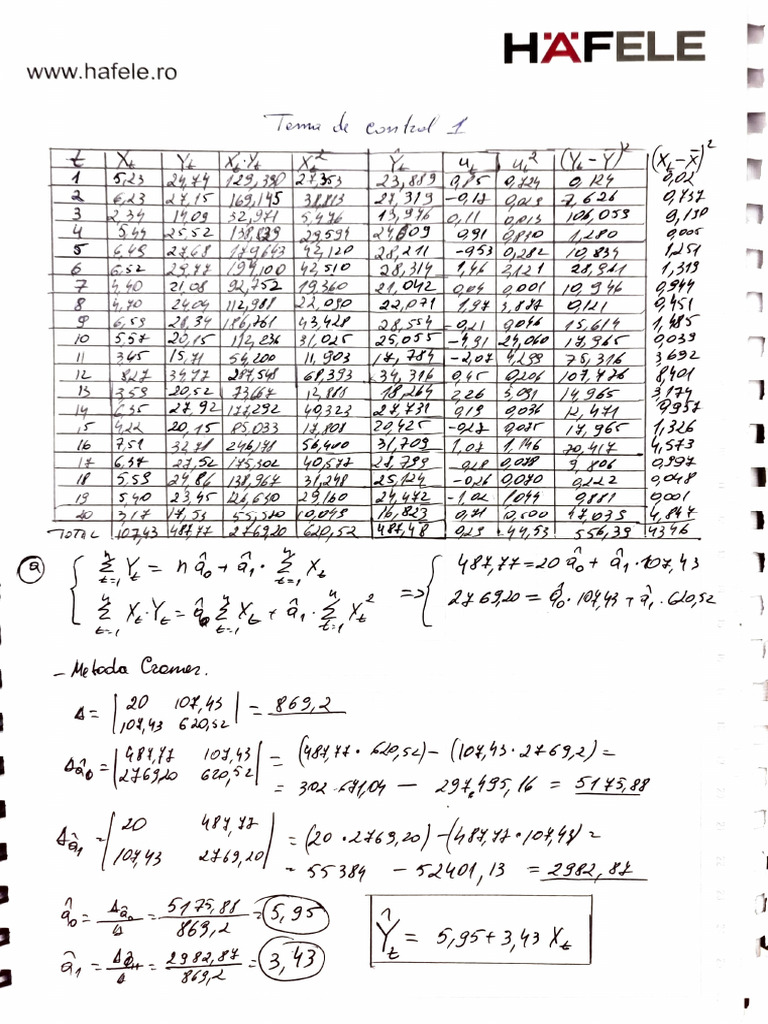 HÄFELE
www.hafele.ro
Tema de control 1
t Xt Yt Xt·Yt Xt² Ŷt ut ut² (Yt-Ȳ)² (Xt-X̄)²
1 5,23 24,74 129,390 27,353 23,889 0,85 0,724 0,124 0,02
2 6,23 27,15 169,145 38,813 27,319 -0,17 0,029 7,626 0,737
3 2,34 14,09 32,971 5,476 13,976 0,11 0,013 106,059 9,130
4 5,44 25,52 29,594 24,609 0,91 0,830 1,280 0,005
5 6,49 27,68 179,643 42,120 28,211 -0,53 0,282 10,834 1,251
6 6,52 29,77 194,100 42,510 28,314 1,46 2,121 28,961 1,319
7 4,40 21,08 92,752 19,360 21,042 0,04 0,001 10,946 0,944
8 4,70 24,04 112,988 22,090 22,071 1,97 0,121 0,451
9 6,59 28,34 186,761 43,428 28,554 -0,21 0,046 15,614 1,485
10 5,57 20,15 112,236 31,025 25,055 -4,91 24,060 17,965 0,039
11 3,45 15,71 54,200 11,903 17,784 -2,07 4,299 75,316 3,692
12 8,27 34,77 287,548 68,393 34,316 0,45 0,206 107,476 8,401
13 3,59 20,52 73,667 12,888 18,264 2,26 5,091 14,965 3,174
14 6,35 27,92 177,292 40,323 27,731 0,19 0,036 12,471 0,957
15 4,22 20,15 85,033 17,808 20,425 -0,27 0,075 17,965 1,326
16 7,51 32,78 246,178 56,400 31,709 1,07 1,146 70,417 4,573
17 6,37 27,52 175,302 40,577 27,799 -0,28 0,078 9,806 0,997
18 5,59 24,86 138,967 31,248 25,124 -0,26 0,070 0,222 0,048
19 5,40 23,45 126,630 29,160 24,472 -1,02 1,044 0,881 0,001
20 3,17 17,53 55,570 10,049 16,823 0,71 0,500 47,035 4,847
TOTAL 107,43 487,77 2769,20 620,52 487,48 0,29 44,53 556,39 43,46
a) { Σ(t=1..n) Yt = n â0 + â1 · Σ(t=1..n) Xt
Σ(t=1..n) Xt·Yt = â0 Σ(t=1..n) Xt + â1 · Σ(t=1..n) Xt²
=> { 487,77 = 20 â0 + â1 · 107,43
2769,20 = â0 · 107,43 + â1 · 620,52
- Metoda Cramer.
Δ = | 20 107,43 | = 869,2
| 107,43 620,52 |
Δâ0 = | 487,77 107,43 | = (487,77 · 620,52) - (107,43 · 2769,2) =
| 2769,20 620,52 | = 302 671,04 - 297.495,16 = 5175,88
Δâ1 = | 20 487,77 | = (20 · 2769,20) - (487,77 · 107,43) =
| 107,43 2769,20 | = 55384 - 52401,13 = 2982,87
â0 = Δâ0/Δ = 5175,88/869,2 = 5,95
â1 = Δâ1/Δ = 2982,87/869,2 = 3,43
Ŷt = 5,95 + 3,43 Xt